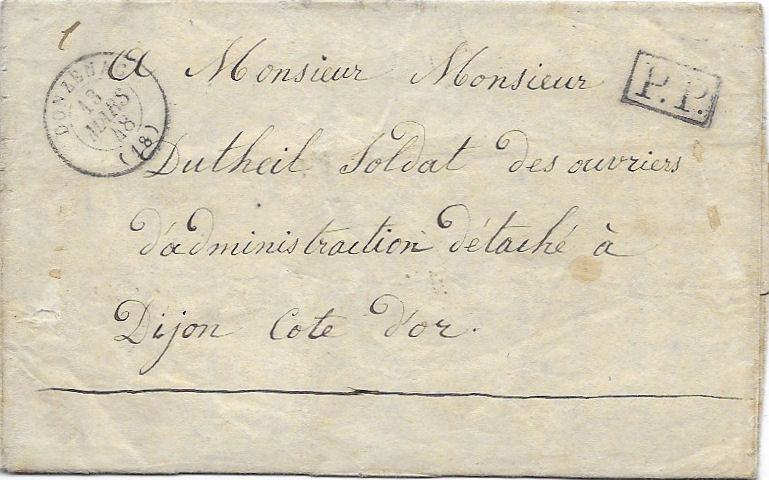 1
DONZENAC
13
MARS
48
(18)
P.P.
A Monsieur Monsieur
Dutheil Soldat des ouvriers
d'administraction détaché à
Dijon Cote d'or.